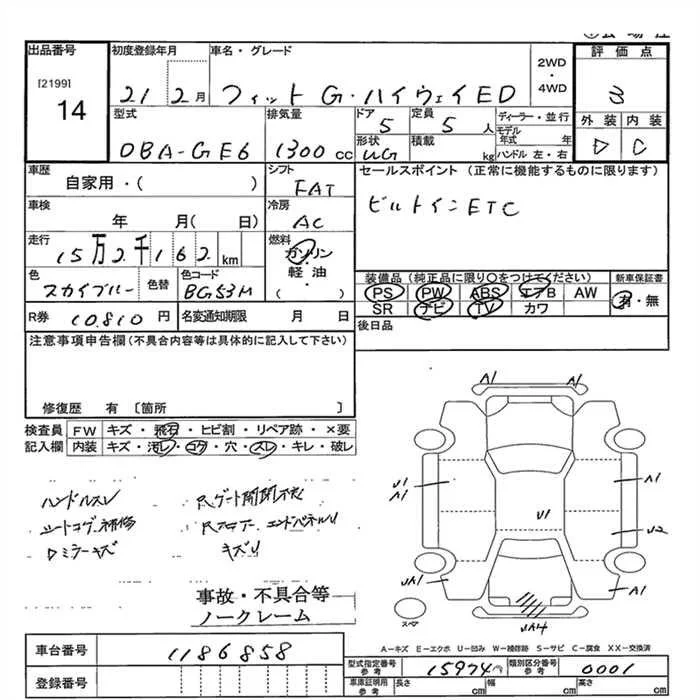 出品番号 初度登録年月 車名・グレード 評価点
[2199]
14
21 2月 フィット G・ハイウェイED
2WD
・
4WD
3
型式 排気量 ドア 定員 ディーラー・並行 外装 内装
DBA-GE6 1300 cc 5 5 人
モデル年式 年
形状 積載
UG kg ハンドル 左・右
D C
車歴 シフト セールスポイント (正常に機能するものに限ります)
自家用・( ) FAT
ビルトインETC
車検 冷房
年 月( 日) AC
走行 燃料
15万2千162 km ガソリン
軽油
( )
色 色替 色コード
スカイブルー BG53M
装備品 (純正品に限り○をつけてください) 新車保証書
PS PW ABS エアB AW 有・無
SR ナビ TV カワ
R券 10,810 円 名変通知期限 月 日
後日品
注意事項申告欄 (不具合内容等は具体的に記入して下さい)
修復歴 有 〔箇所 〕
検査員 FW キズ・飛石・ヒビ割・リペア跡・×要
記入欄 内装 キズ・汚レ・コゲ・穴・スレ・キレ・破レ
ハンドルスレ
シートコゲ補修
ロミラーキズ
Rゲート開閉不良
Rフロアー、エンドパネルU
キズU
A1 A1
U1
A1
A1
U1
U2
UA1
A1
スペア
UA4
事故・不具合等
ノークレーム
A-キズ E-エクボ U-凹み W-補修跡 S-サビ C-腐食 XX-交換済
車台番号 1186858
登録番号
型式指定番号 参考 15974 類別区分番号 参考 0001
車庫証明用 参考 長さ cm 幅 cm 高さ cm